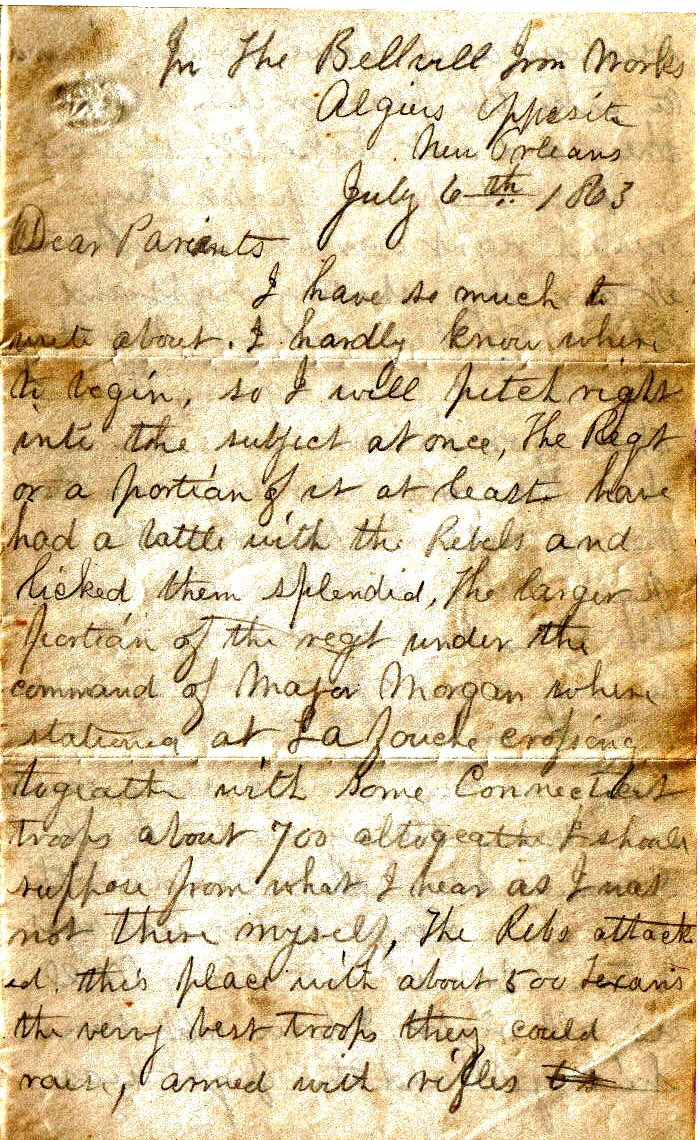 In The Bellvill Iron Works
Algiers Opposite
New Orleans
July 6th. 1863
Dear Parients
I have so much to
write about. I hardly know where
to begin, so I will pitch right
into the subject at once, The Regt
or a portian of it at least have
had a battle with the Rebels and
licked them splendid, The larger
portian of the regt under the
command of Major Morgan where
stationed at La fouche crossing
togeather with some Connecticut
troops about 700 altogeather I should
suppose from what I hear as I was
not there myself, The Rebs attack
ed. this place with about 500 Texans
the very best troops they could
raise, armed with rifles